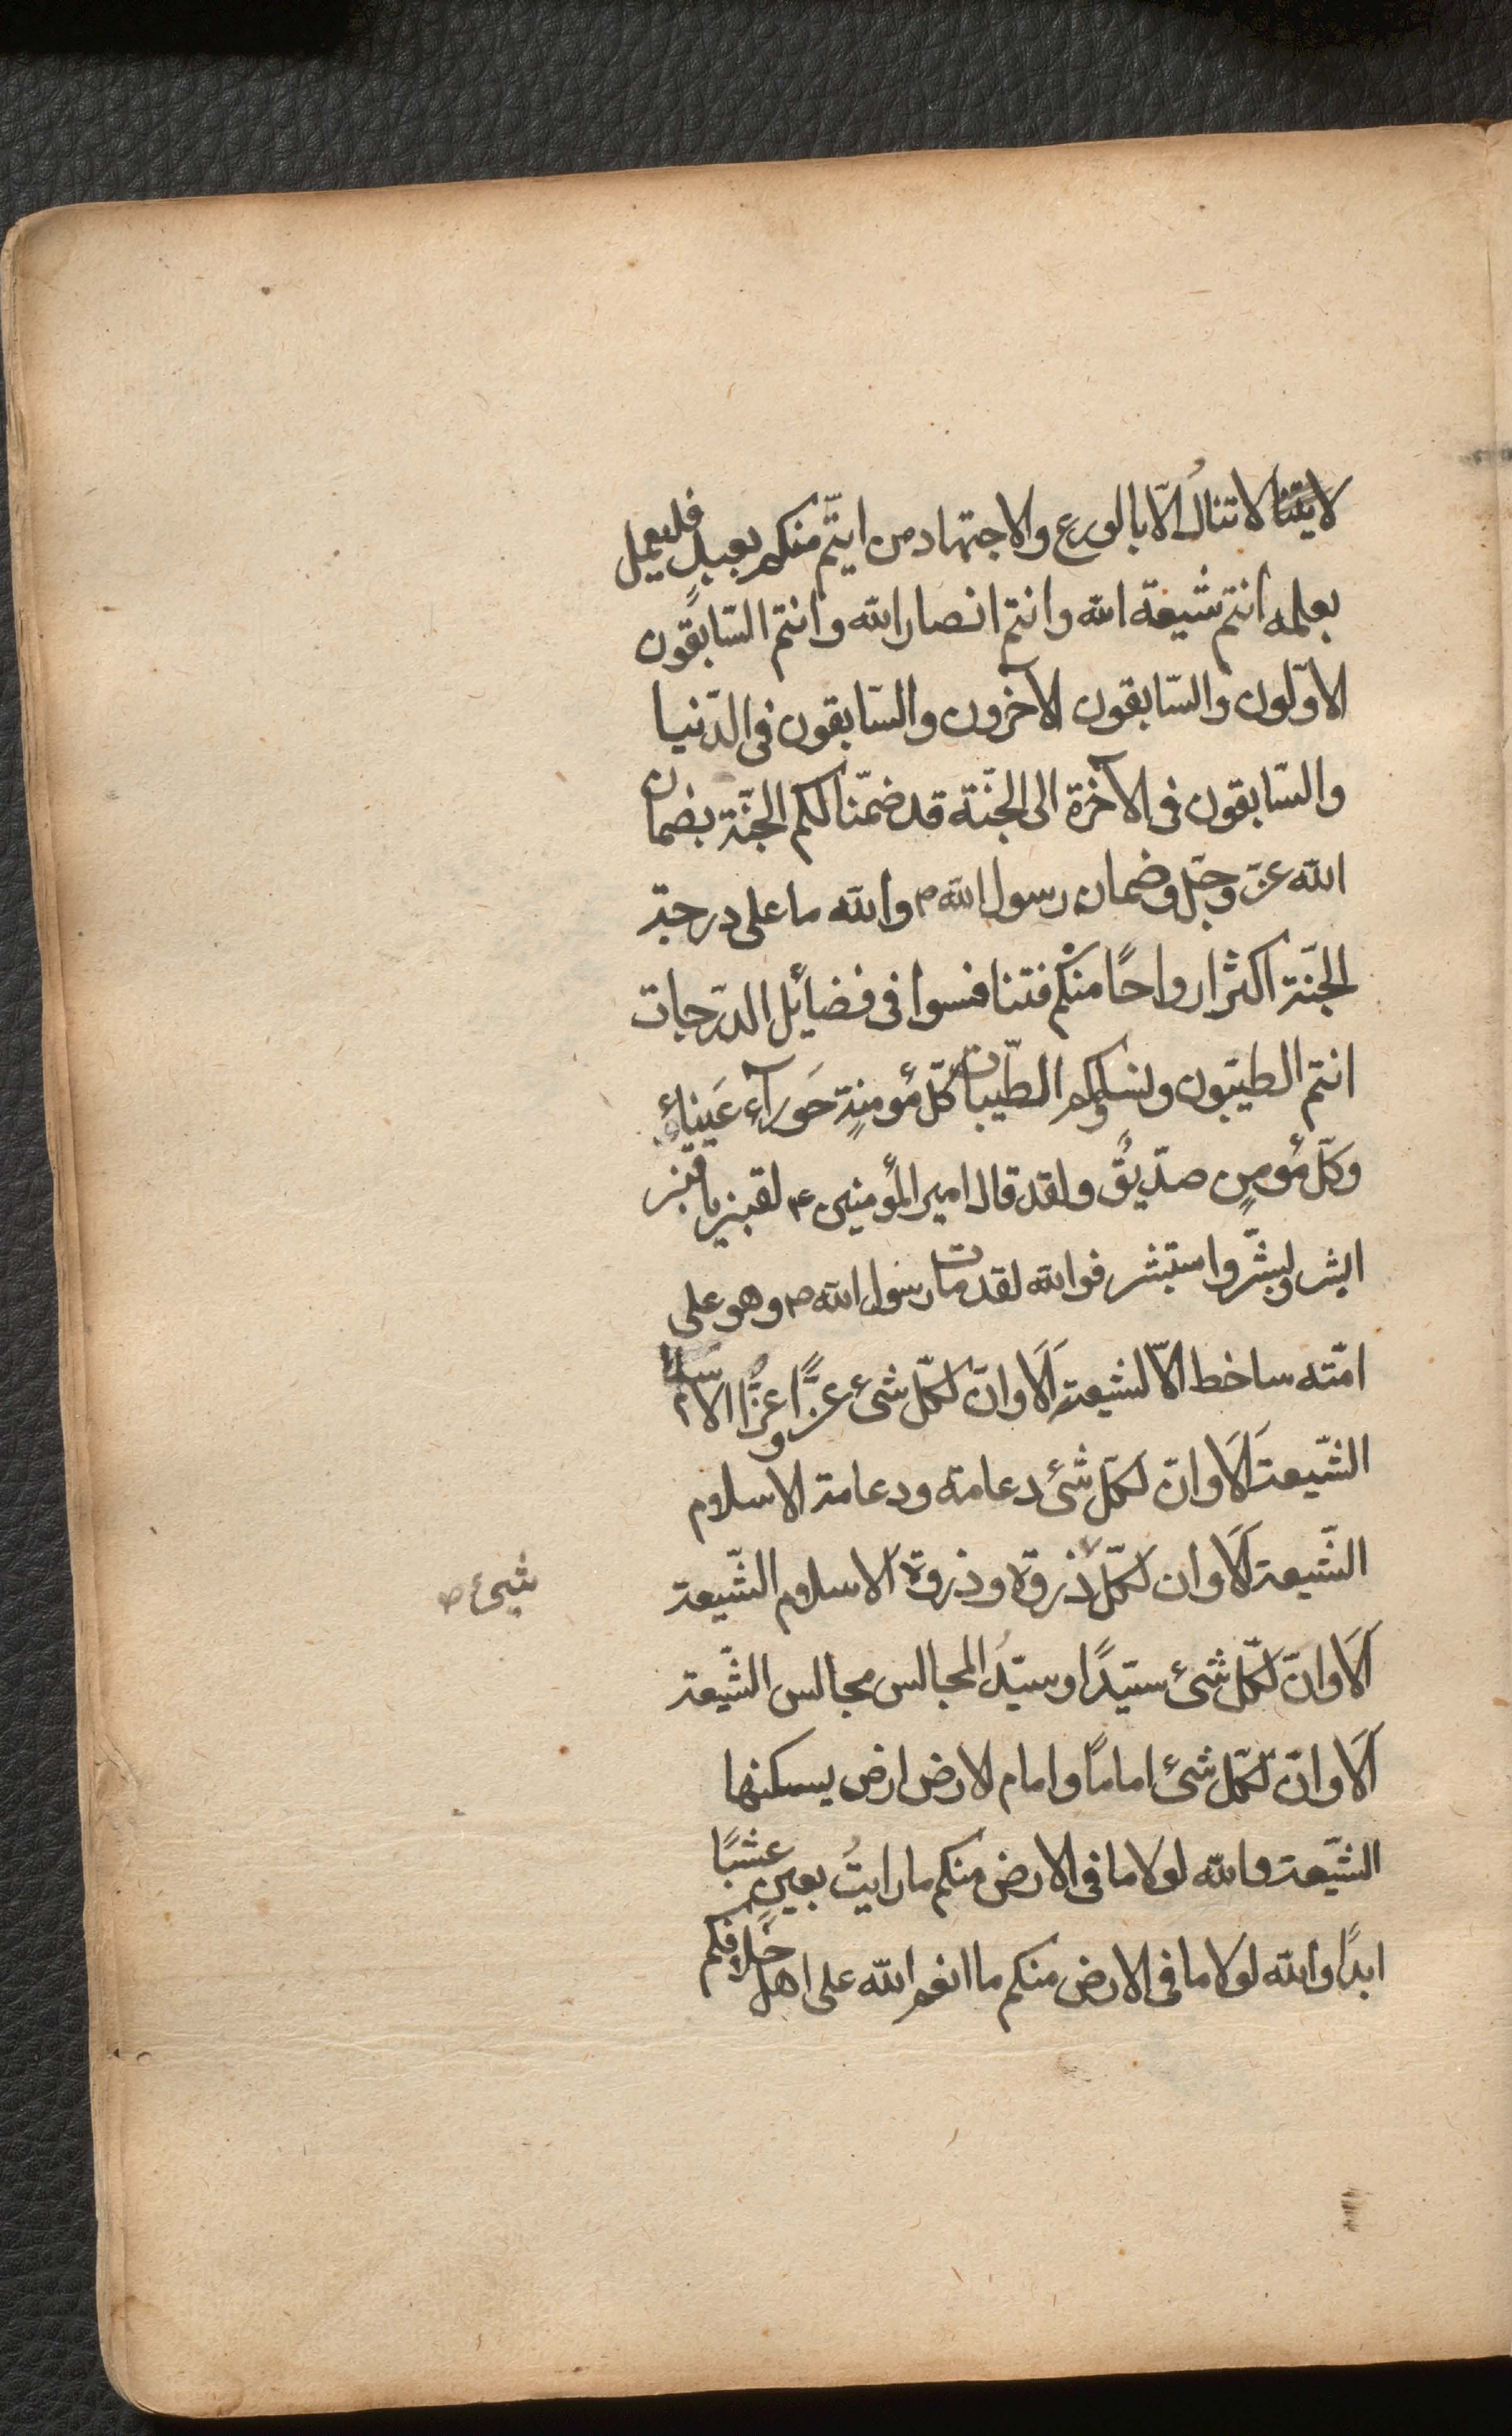 لايتنا لا تنالُ الّا بالورع والاجتهاد من ايتمّ منكم بعبدٍ فليعمل
بعلمه انتم شيعة الله وانتم انصار الله وانتم السّابقون
الاوّلون والسّابقون الآخرون والسّابقون فى الدّنيا
والسّابقون فى الآخرة الى الجنّة قد ضمّنا لكم الجنّة بضمان
الله عزّ وجلّ وضمان رسول الله ص والله ما على درجة
الجنّة اكثر ارواحًا منكم فتنافسوا فى فضائل الدّرجات
انتم الطيّبون ونساؤكم الطيّبات كلّ مؤمنةٍ حَوراء عَيناء
وكلّ مؤمنٍ صدّيقٌ ولقد قال امير المؤمنين ع لقنبر يا قنبر
ابشر وبشّر واستبشر فوالله لقد مات رسول الله ص وهو على
امّته ساخط الّا لشيعة اَلَا وانّ لكلّ شئ عزًّا وعزًّا الاسلام
الشّيعة اَلَا وانّ لكلّ شئ دعامة ودعامة الاسلام
الشّيعة اَلَا وان لكلّ ذروة وذروة الاسلام الشّيعة
شيئ ص
اَلَا وانّ لكلّ شئ سيّدًا وسيّدُ المجالس مجالس الشّيعة
اَلَا وانّ لكلّ شئ امامًا وامام لارض ارض يسكنها
الشّيعة والله لولا ما فى الارض منكم ما رايتُ بعينٍ عشبًا
ابدًا والله لولا ما فى الارض منكم ما انعم الله على اهل خلافكم